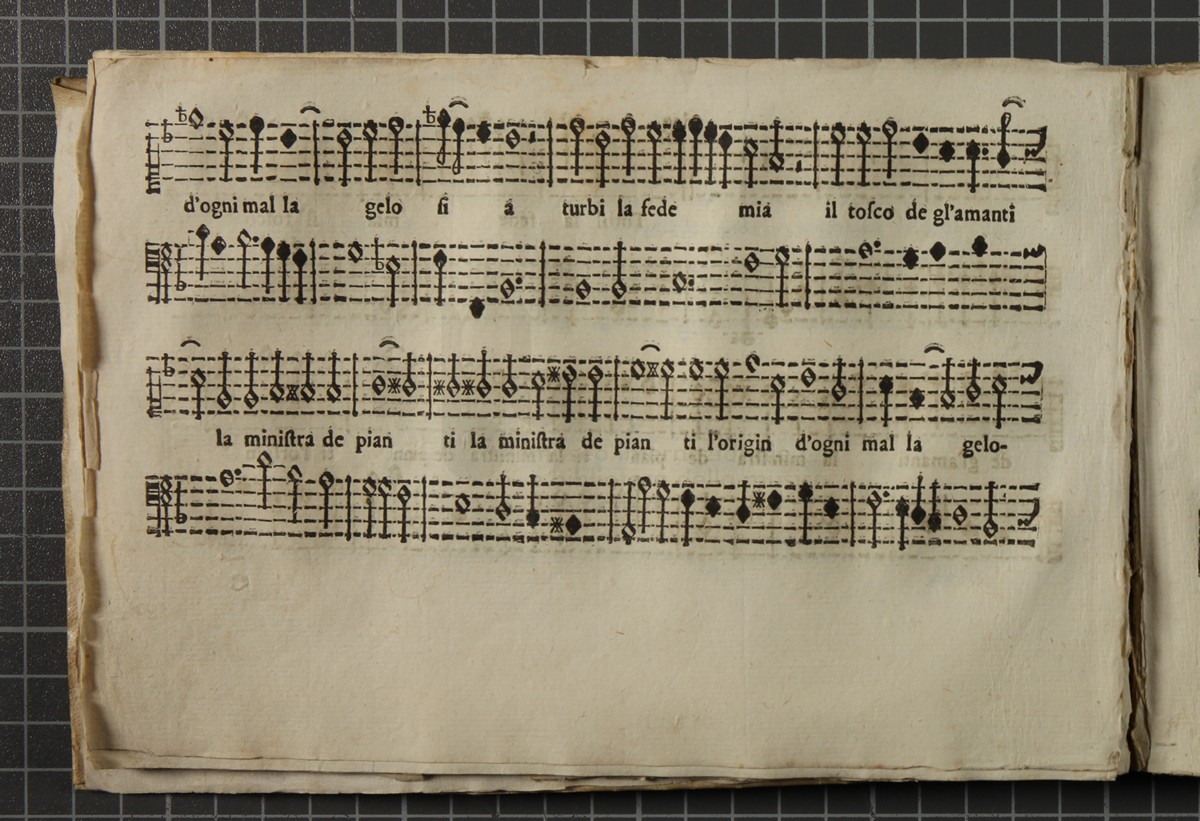 d'ogni mal la gelo ſi a turbi la fede mia il toſco de gl'amanti
la miniſtra de pian ti la miniſtra de pian ti l'origin d'ogni mal la gelo-